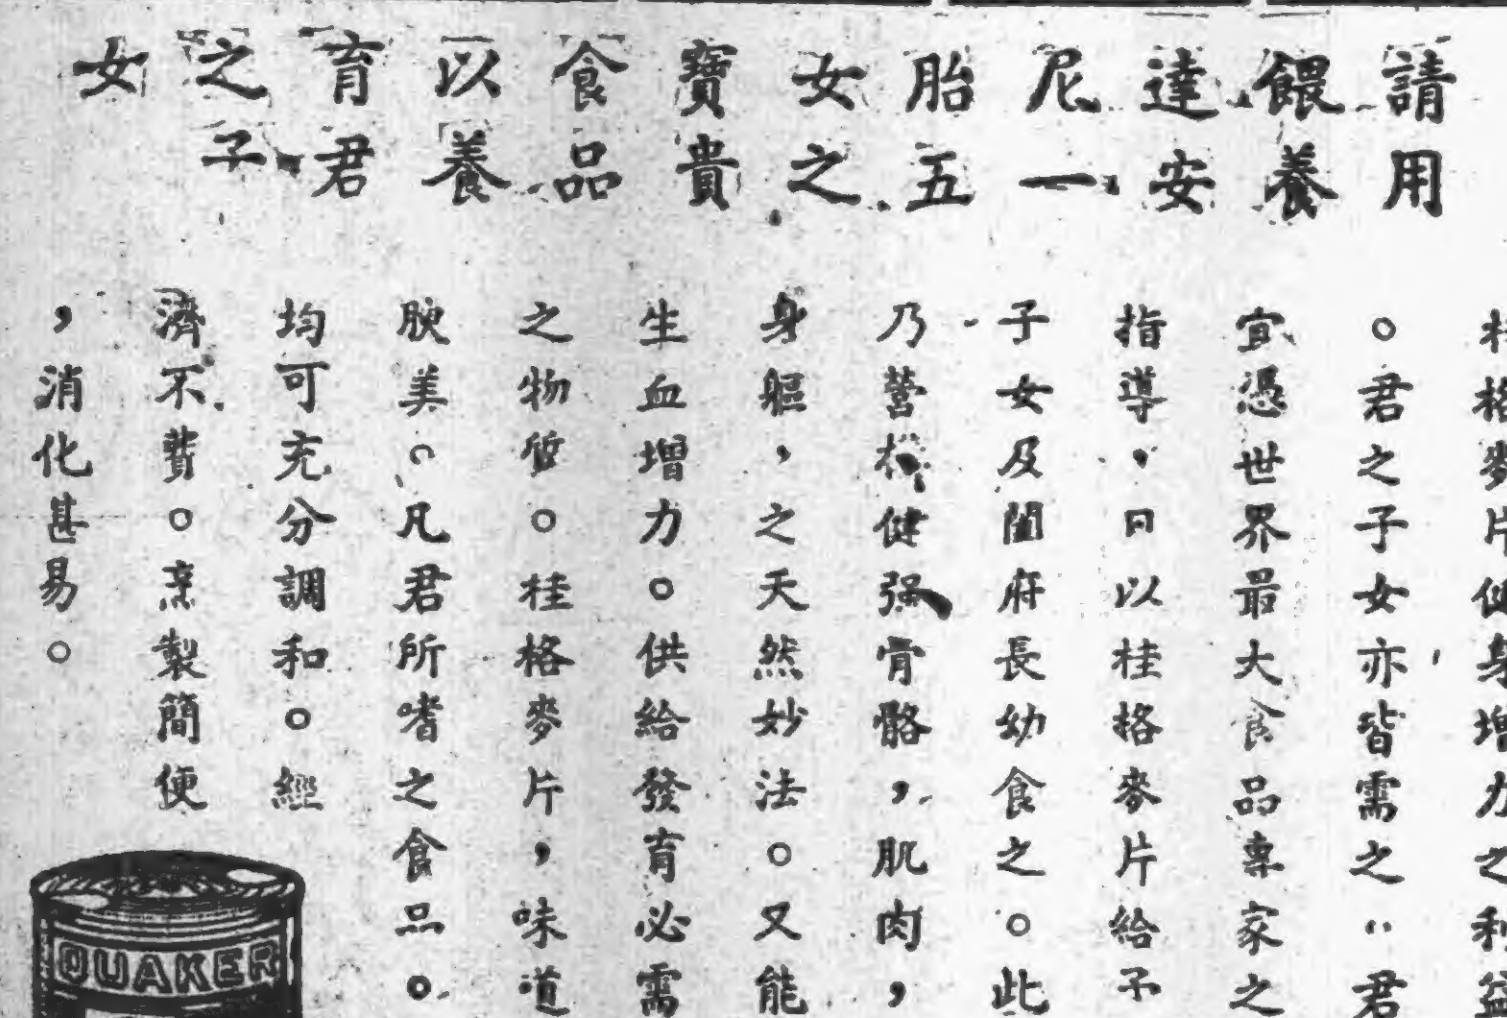 請用
餵養
達安
尼一
胎五
女之
寶貴
食品
以養
育君
之子
女
格麥片健身增力之利益
。君之子女亦皆需之。君
宜憑世界最大食品專家之
指導,日以桂格麥片給予
子女及闔府長幼食之。此
乃營健强骨骼,肌肉,
身軀,之天然妙法。又能
生血增力。供給發育必需
之物質。桂格麥片,味道
腴美。凡君所嗜之食品。
均可充分調和。經
濟不費。烹製簡便
,消化甚易。
QUAKER